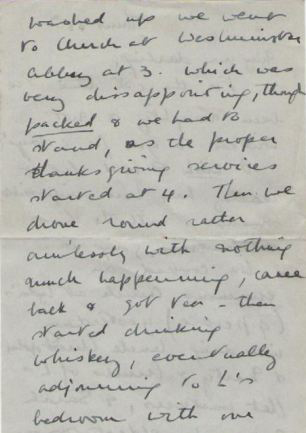 washed up we went
to Church at Westminster
Abbey at 3. which was
very dissappointing, though
packed & we had to
stand, as the proper
thanksgiving services
started at 4. Then we
drove round rather
aimlessly with nothing
much happenning, came
back & got tea - then
started drinking
whiskey, eventually
adjourning to L's
bedroom with one